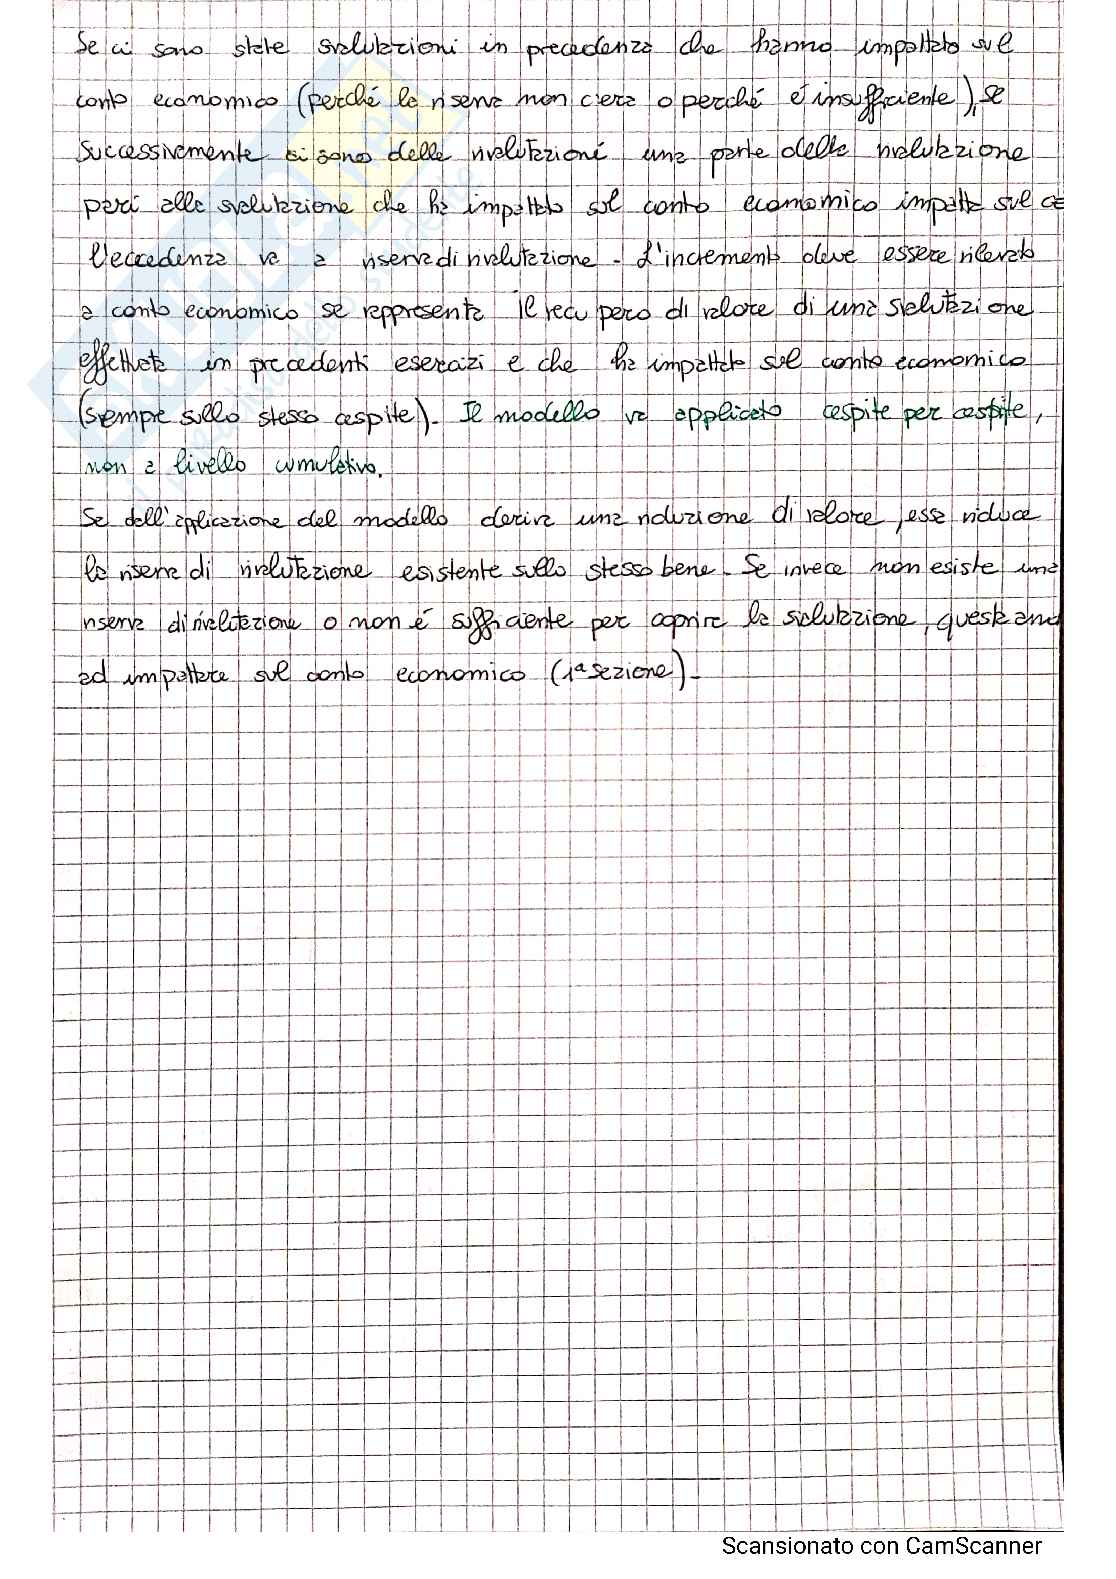 Se ci sono state svalutazioni in precedenza che hanno impattato sul
conto economico (perché la riserva non c'era o perché è insufficiente), se
successivamente ci sono delle rivalutazioni una parte della rivalutazione
pari alla svalutazione che ha impattato sul conto economico impatta sul ce
l'eccedenza va a riserva di rivalutazione. L'incremento deve essere rilevato
a conto economico se rappresenta il recupero di valore di una svalutazione
effettuata in precedenti esercizi e che ha impattato sul conto economico
(sempre sullo stesso cespite). Il modello va applicato cespite per cespite,
non a livello cumulativo.
Se dall'applicazione del modello deriva una riduzione di valore, essa riduce
la riserva di rivalutazione esistente sullo stesso bene. Se invece non esiste una
riserva di rivalutazione o non é sufficiente per coprire la svalutazione, questa
ad impattare sul conto economico (1ª sezione).
Scansionato con CamScanner